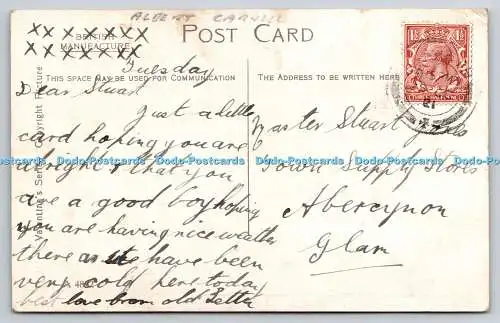 ALBERT
POST CARD
BRITISH
MANUFACTURE
THIS SPACE MAY BE USED FOR COMMUNICATION
THE ADDRESS TO BE WRITTEN HERE
Tuesday
Dear Stuart
Just a little
card hoping you are
alright & that you
are a good boy hoping
you are having nice weather
there as we have been
very cold here today
best love from old
Master Stuart
Town Supply Stores
Abercynon
Glam
Valentine's Series Copyright Picture
Dodo-Postcards Dodo-Postcards Dodo-Postcards Dodo-Postcards Dodo-Postcards Dodo-Postcards